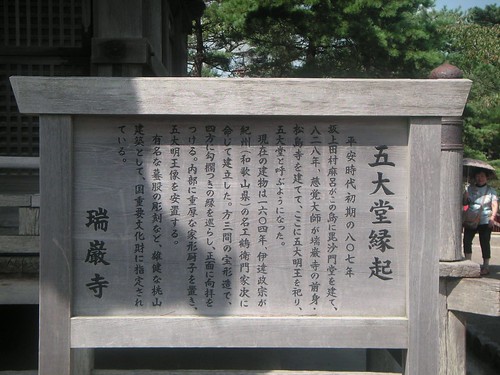 五大堂縁起
平安時代初期の八〇七年
坂上田村麻呂がこの島に毘沙門堂を建て、
八二八年、慈覚大師が瑞巌寺の前身・
松島寺を建てて、ここに五大明王を祀り、
五大堂と呼ぶようになった。
現在の建物は一六〇四年、伊達政宗が
紀州(和歌山県)の名工鶴衛門家次に
命じて建立した。方三間の宝形造で、
四方に勾欄つきの縁を巡らし、正面に向拝を
つける。内部に重厚な家形厨子を置き、
五大明王像を安置する。
有名な蟇股の彫刻など、雄健な桃山
建築として、国重要文化財に指定され
ている。
瑞巌寺